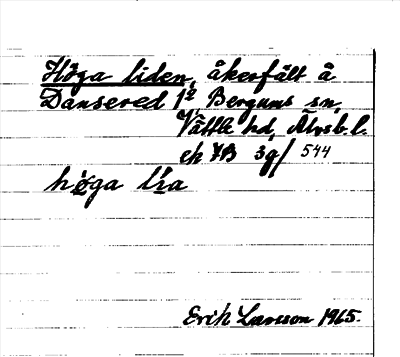 Höga liden, åkerfält å
Dansered 1², Bergums sn,
Vättle hd, Älvsb. l.
ek 7B 3g/544
höga lia
Erik Larsson 1965.